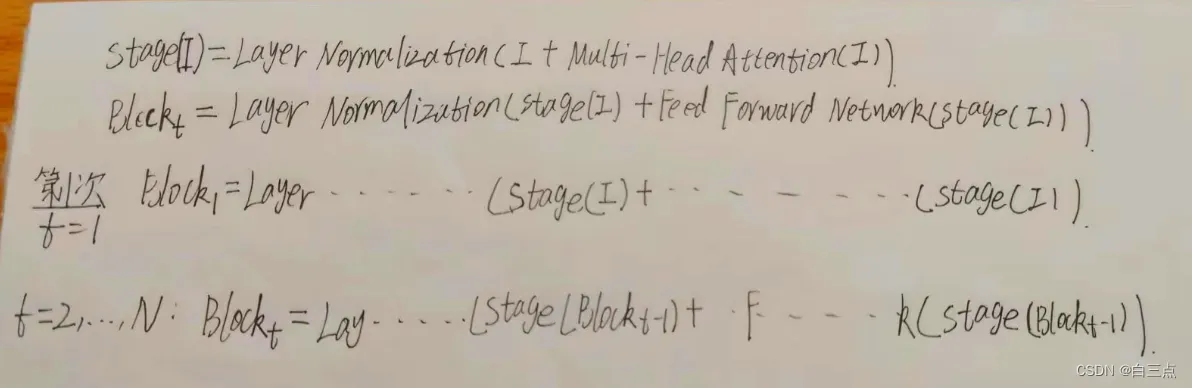 Stage(I)=Layer Normalization(I + Multi-Head Attention(I)).
Block_t = Layer Normalization(stage(I) + Feed Forward Network(stage(I))).
第1次 Block_1=Layer ······ (Stage(I)+ ······ (stage(I)).
t=1
t=2,...,N: Block_t=Lay ······ (Stage(Block_t-1)+ F ···· k(stage(Block_t-1)).
CSDN @白三点